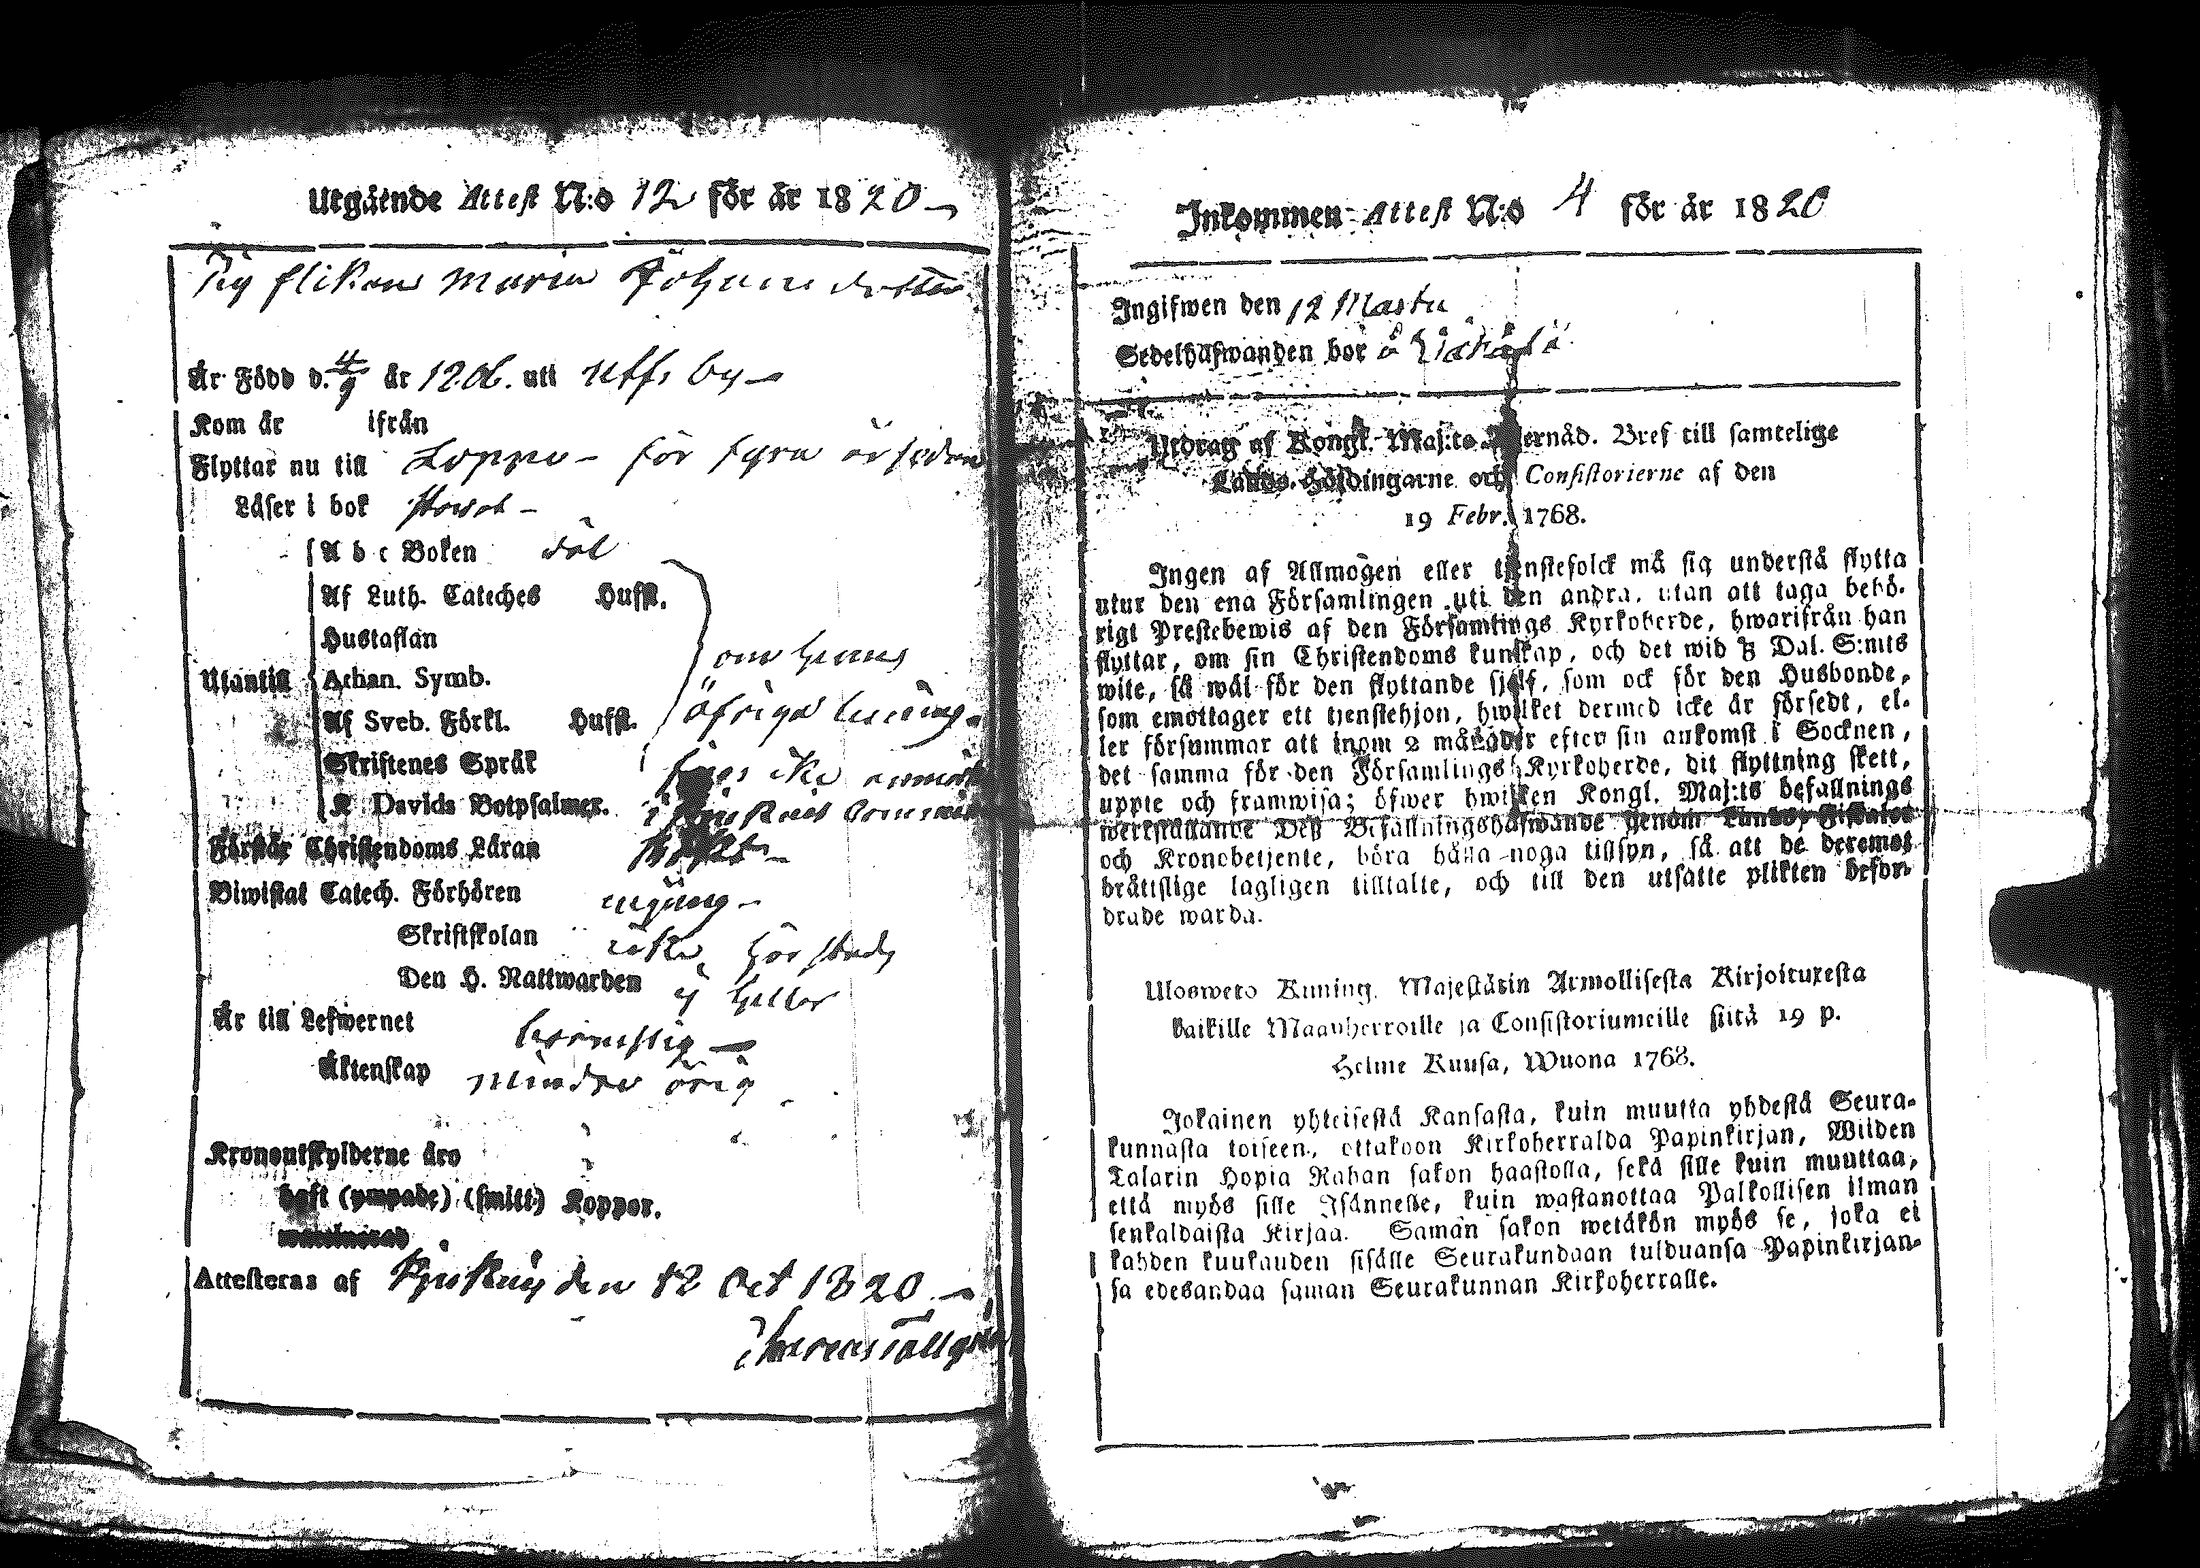 Utgående Attest N:o 12 för år 1820
Pig flikan Maria Johans dotter
Är Född d. 4/9 år 1206. uti Uffs by
Kom år ifrån
Flyttar nu till Loppo - för fyra år sedan
Läser i bok
A b c Boken väl
Af Luth. Catéches Husst.
Hustaflan
om hennes
Utantill Athan. Symb.
Af Sveb. Förkl. Husst. öfriga
Skriftenes Språk icke
K Davids Botpsalmer. i
Förstår Christendoms Läran
Biwistat Catech. Förhören
Skriftskolan icke
Den H. Nattwarden ej heller
Är till Lefwernet
Äktenskap minder årig
Kronoutskylderne äro
haft (ympade) (smitt) Koppor.
waccinerad
Attesteras af den 12 Oct 1820
Tallgren
Inkommen Attest N:o 4 för år 1820
Ingifwen den 12 Martii
Sedelhafwanden bor å
Utdrag af Kongl. Maj:ts ernåd. Bref till samtelige
Lands-Höfdingarne och Consistorierne af den
19 Febr. 1768.
Ingen af Allmogen eller tjenstefolck må sig understå flytta
utur den ena Församlingen uti den andra, utan att taga behö-
rigt Prestebewis af den Församlings Kyrkoherde, hwarifrån han
flyttar, om sin Christendoms kunskap, och det wid 3 Dal. S:mts
wite, så wäl för den flyttande sjelf, som ock för den Husbonde,
som emottager ett tjenstehjon, hwilket dermed icke är försedt, el-
ler försummar att inom 2 månader efter sin ankomst i Socknen,
det samma för den Församlings Kyrkoherde, dit flyttning skett,
uppte och framwisa; öfwer hwilken Kongl. Maj:ts befallnings
werkställande Deß Befallningshafwande genom Lands-Fiskaler
och Kronobetjente, böra hålla noga tillsyn, så att de deremot
bråttslige lagligen tilltalte, och till den utsatte plikten befor-
drade warda.
Ulosweto Kuning. Majestätin Armollisesta Kirjoituxesta
kaikille Maanherroille ja Consistoriumeille siitä 19 p.
Helme Kuusa, Wuona 1768.
Jokainen yhteisestä Kansasta, kuin muutta yhdestä Seura-
kunnasta toiseen, ottakoon Kirkoherralda Papinkirjan, Wiiden
Talarin Hopia Rahan sakon haastolla, sekä sille kuin muuttaa,
että myös sille Isännelle, kuin wastanottaa Palkollisen ilman
senkaldaista Kirjaa. Saman sakon wetäkön myös se, joka ei
kahden kuukauden sisälle Seurakundaan tulduansa Papinkirjan-
sa edesandaa saman Seurakunnan Kirkoherralle.